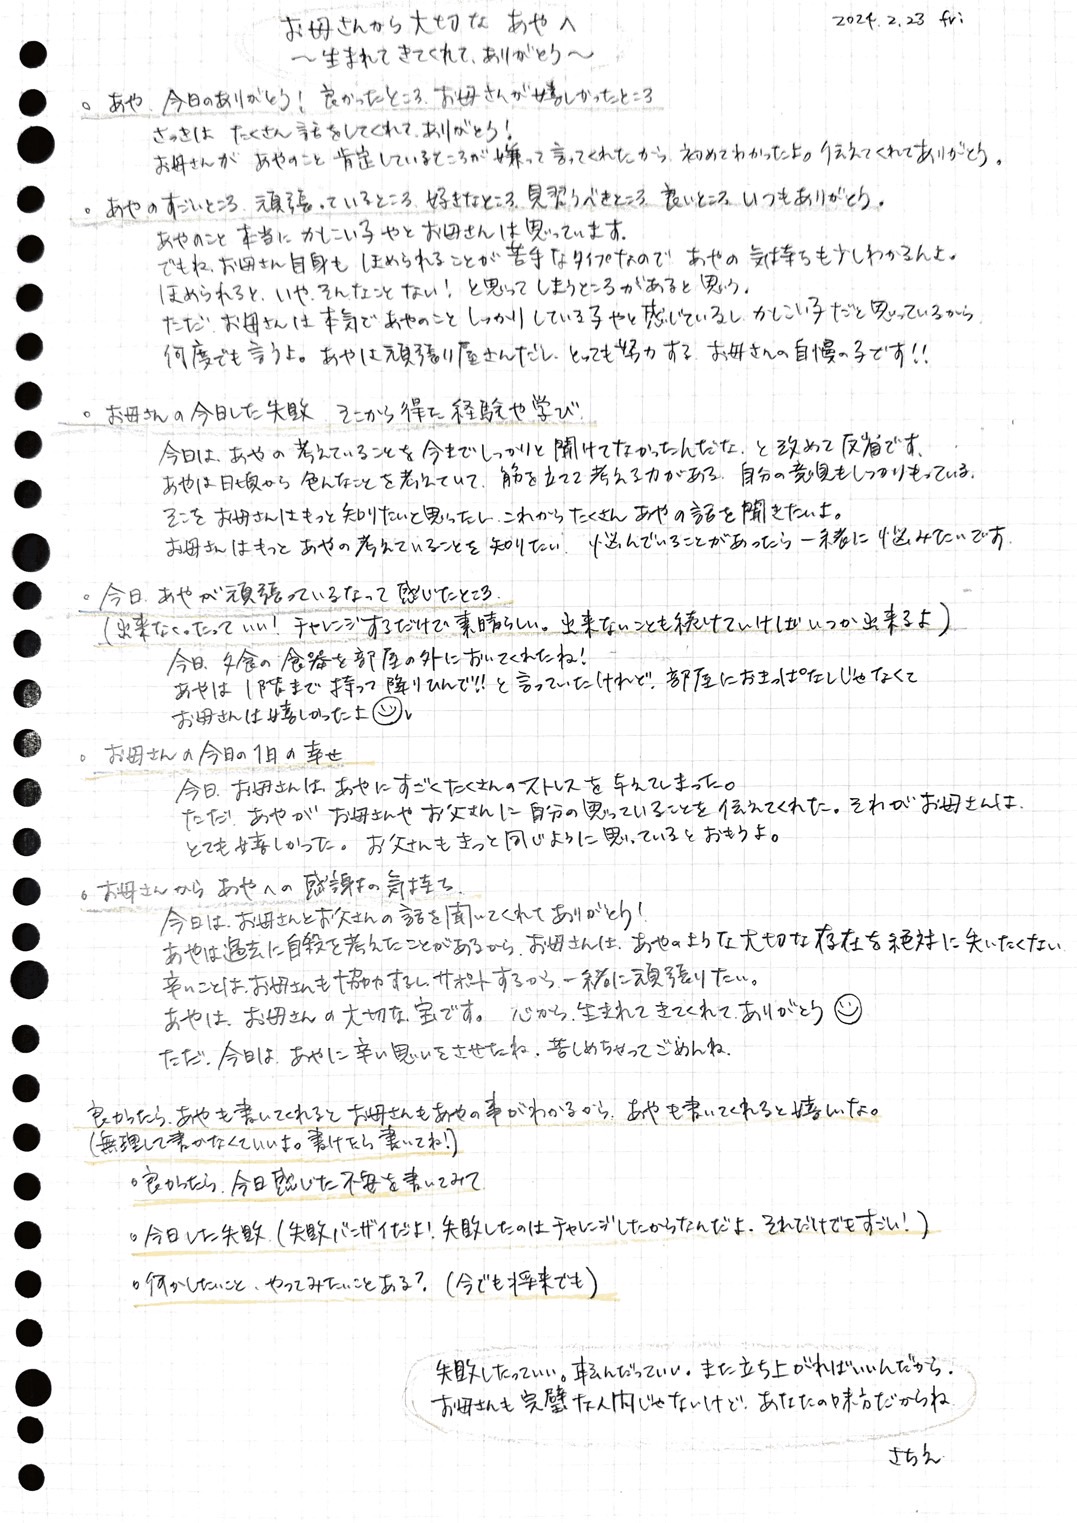 2024.2.23 fri
お母さんから大切な あやへ
〜生まれてきてくれて、ありがとう〜
。あや、今日のありがとう！良かったところ、お母さんが嬉しかったところ
さっきは たくさん話をしてくれて、ありがとう！
お母さんが あやのこと 肯定しているところが嫌って言ってくれたから、初めてわかったよ。伝えてくれてありがとう。
。あやのすごいところ、頑張っているところ、好きなところ、見習うべきところ、良いところ、いつもありがとう。
あやのこと 本当に かしこい子やとお母さんは思っています。
でもね、お母さん自身も ほめられることが苦手なタイプなので、あやの気持ちも少しわかるんよ。
ほめられると、いや、そんなことない！と思ってしまうところがあると思う。
ただ、お母さんは本気で、あやのこと しっかりしている子やと感じているし、かしこい子だと思っているから、
何度でも言うよ。あやは頑張り屋さんだし、とっても努力する、お母さんの自慢の子です!!
。お母さんの今日した失敗、そこから得た経験や学び
今日は、あやの考えていることを今までしっかりと聞けてなかったんだな、と改めて反省です。
あやは日頃から色んなことを考えていて、筋を立てて考える力がある、自分の意見もしっかりもっている。
そこをお母さんはもっと知りたいと思ったし、これからたくさんあやの話を聞きたいよ。
お母さんはもっと あやの考えていることを知りたい、悩んでいることがあったら一緒に悩みたいです。
。今日、あやが頑張っているなって感じたところ
(出来なくったっていい！チャレンジするだけで素晴らしい。出来ないことも続けていけばいつか出来るよ)
今日、夕食の食器を部屋の外においてくれたね！
あやは 1階まで持って降りひんで!!と言っていたけれど、部屋におきっぱなしじゃなくて
お母さんは嬉しかったよ
。お母さんの今日の1日の幸せ
今日、お母さんは、あやにすごくたくさんのストレスを与えてしまった。
ただ、あやが お母さんや お父さんに自分の思っていることを伝えてくれた。それがお母さんは、
とても嬉しかった。お父さんもきっと同じように思っているとおもうよ。
。お母さんから あやへの感謝の気持ち
今日は、お母さんとお父さんの話を聞いてくれてありがとう！
あやは過去に自殺を考えたことがあるから、お母さんは、あやのような大切な存在を絶対に失いたくない
辛いことは、お母さんも協力するし、サポートするから、一緒に頑張りたい。
あやは、お母さんの大切な宝です。心から、生まれてきてくれて、ありがとう
ただ、今日は、あやに辛い思いをさせたね、苦しめちゃってごめんね、
良かったら、あやも書いてくれると お母さんもあやの事がわかるから、あやも書いてくれると嬉しいな。
(無理して書かなくていいよ。書けたら書いてね！)
。良かったら、今日感じた不安を書いてみて
。今日した失敗 (失敗バンザイだよ！失敗したのはチャレンジしたからなんだよ、それだけでもすごい！)
。何かしたいこと、やってみたいことある？(今でも将来でも)
失敗したっていい。転んだっていい。また立ち上がればいいんだから。
お母さんも完璧な人間じゃないけど、あなたの味方だからね
さちえ